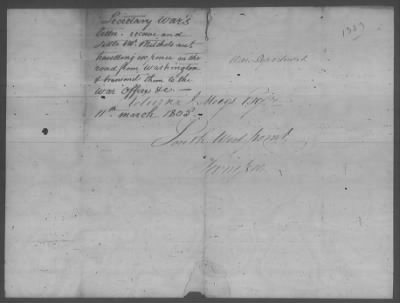 Secretary War's
letter - receive and
settle Mr. Nichols acct
travelling expence on the
road from Washington
& transmit them to the
War Office &c. —
J Meigs Esqr
11th march 1803
War Department
South West Point